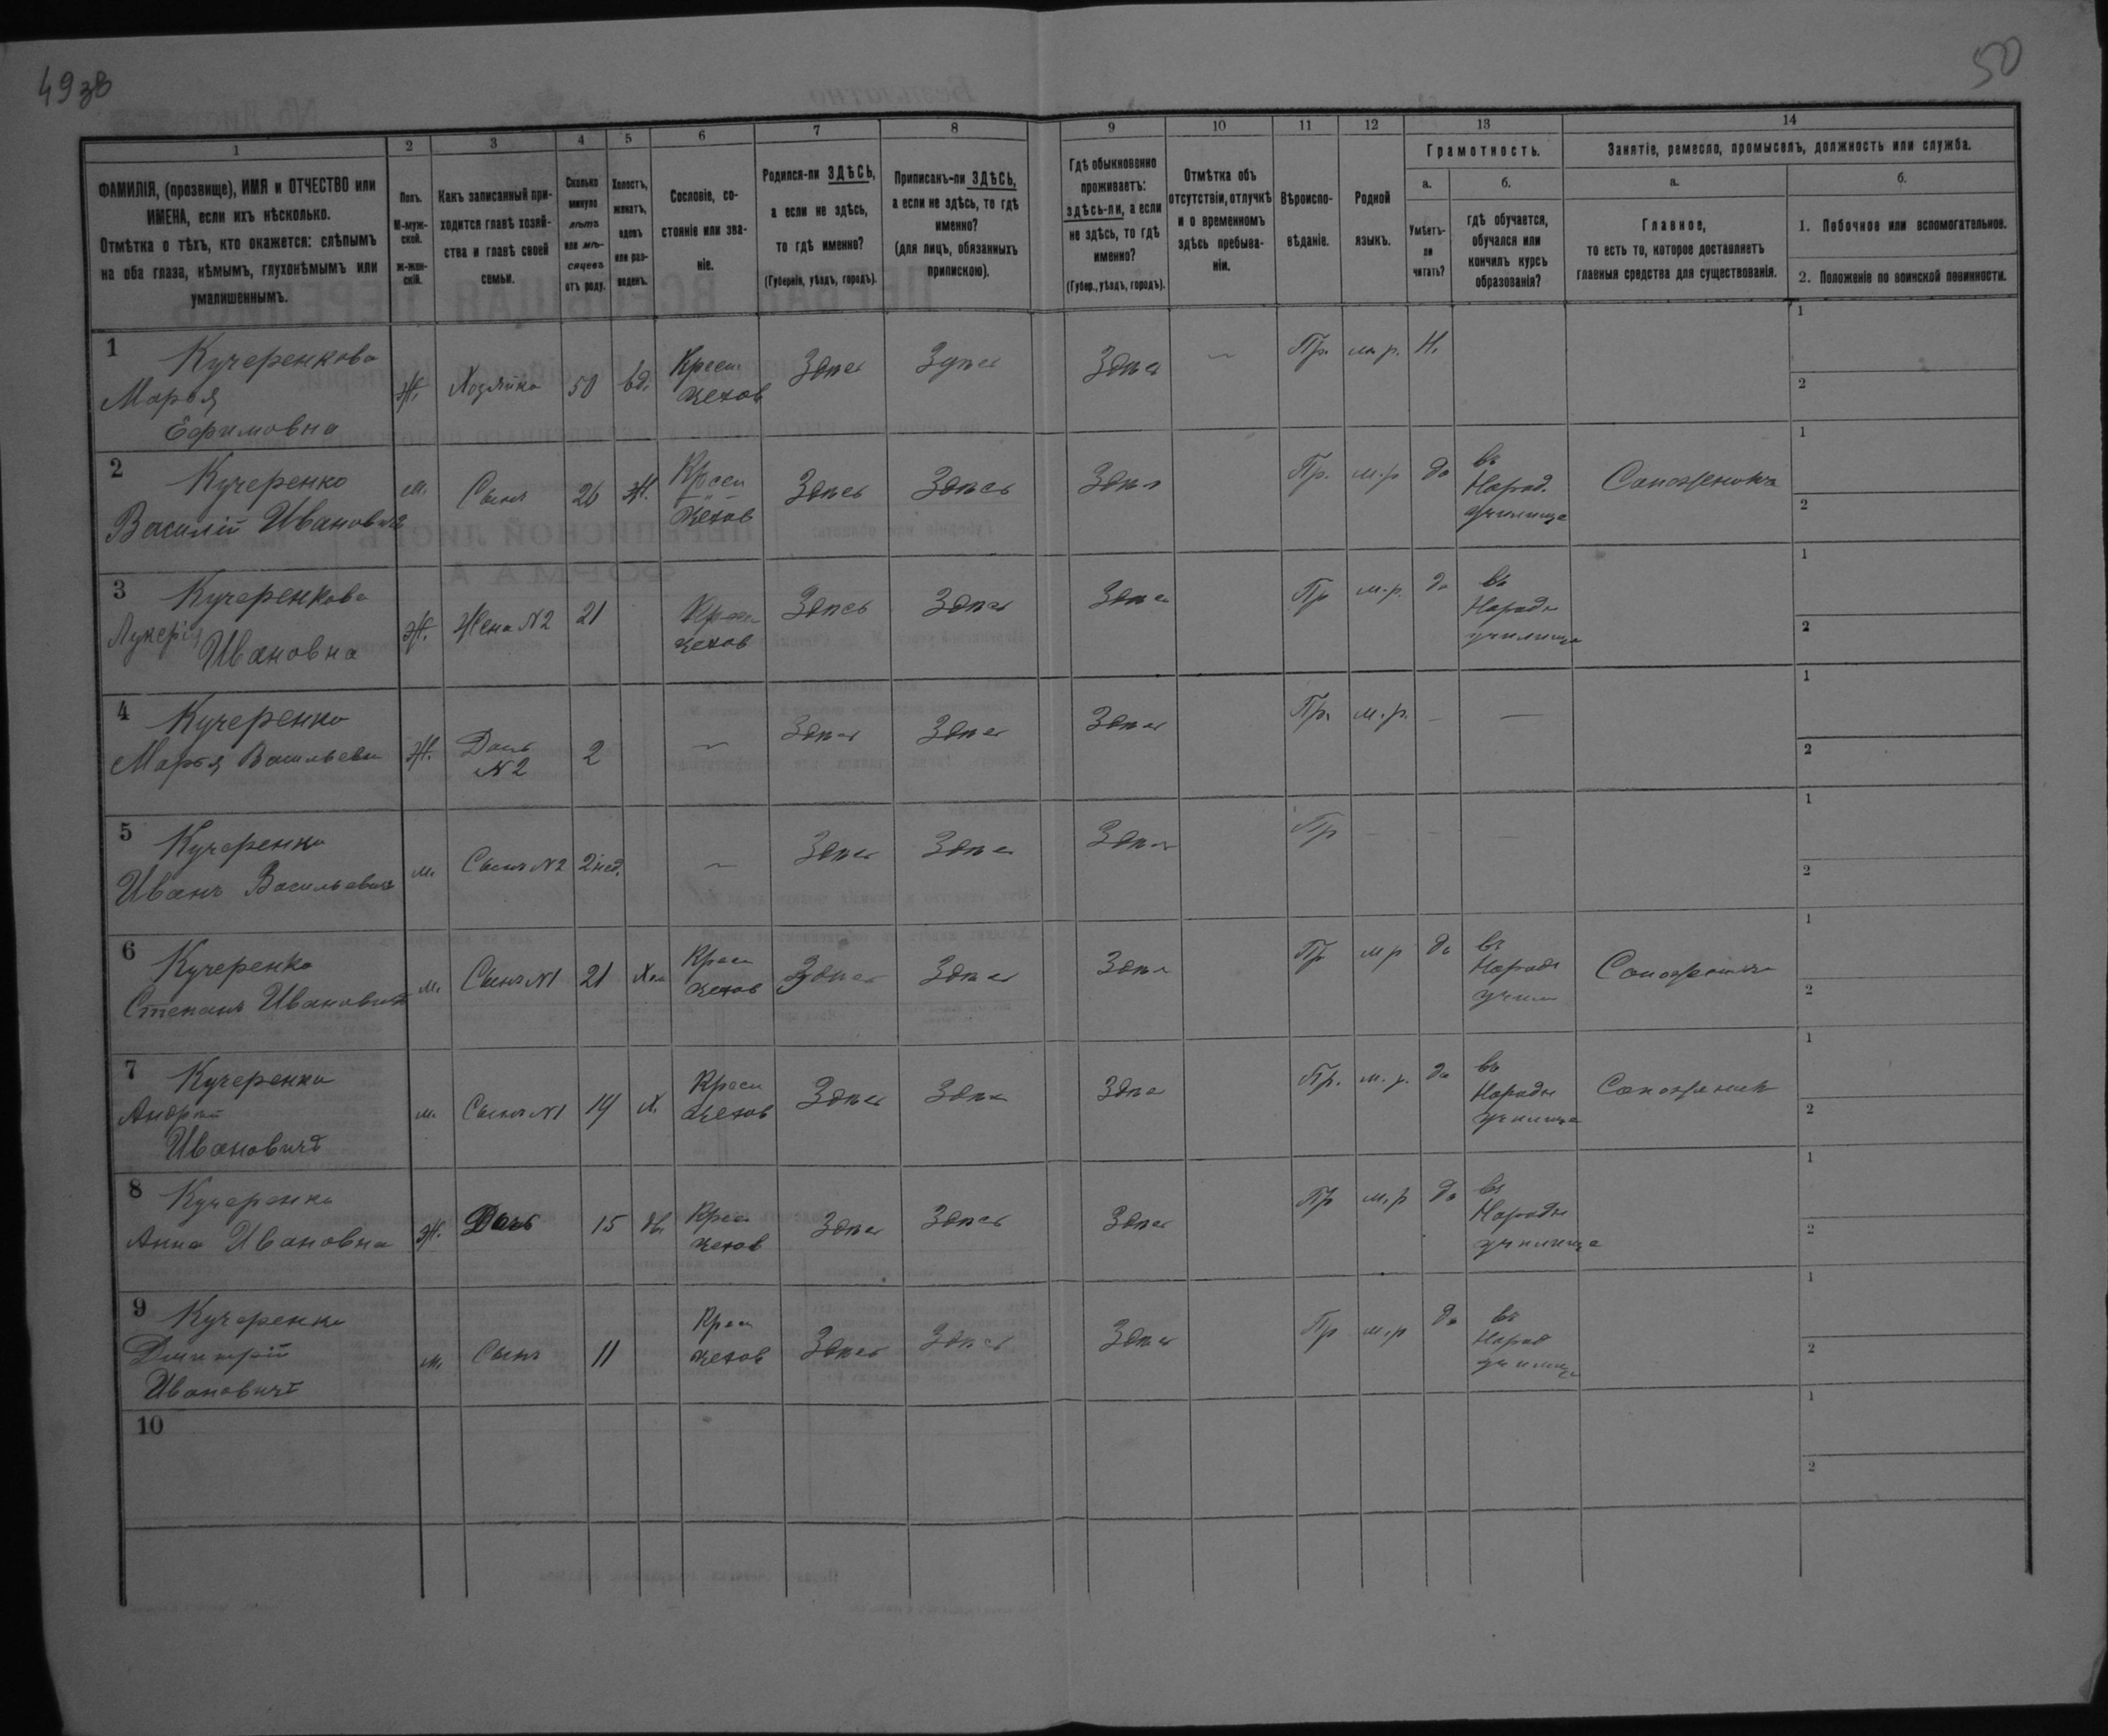 49 зв
50
1 2 3 4 5 6 7 8 9 10 11 12 13 14
ФАМИЛІЯ, (прозвище), ИМЯ и ОТЧЕСТВО или
ИМЕНА, если ихъ нѣсколько.
Отмѣтка о тѣхъ, кто окажется: слѣпымъ
на оба глаза, нѣмымъ, глухонѣмымъ или
умалишеннымъ.
Полъ.
М-муж-
ской.
Ж-жен-
скій.
Какъ записанный при-
ходится главѣ хозяй-
ства и главѣ своей
семьи.
Сколько
минуло
лѣтъ
или мѣ-
сяцевъ
отъ роду.
Холостъ,
женатъ,
вдовъ
или раз-
веденъ.
Сословіе, со-
стояніе или зва-
ніе.
Родился-ли ЗДѢСЬ,
а если не здѣсь,
то гдѣ именно?
(Губернія, уѣздъ, городъ).
Приписанъ-ли ЗДѢСЬ,
а если не здѣсь, то гдѣ
именно?
(для лицъ, обязанныхъ
припискою).
Гдѣ обыкновенно
проживаетъ:
здѣсь-ли, а если
не здѣсь, то гдѣ
именно?
(Губер., уѣздъ, городъ).
Отмѣтка объ
отсутствіи, отлучкѣ
и о временномъ
здѣсь пребыва-
ніи.
Вѣроиспо-
вѣданіе.
Родной
языкъ.
Грамотность.
а.
Умѣетъ-
ли
читать?
б.
гдѣ обучается,
обучался или
кончилъ курсъ
образованія?
Занятіе, ремесло, промыселъ, должность или служба.
а.
Главное,
то есть то, которое доставляетъ
главныя средства для существованія.
б.
1. Побочное или вспомогательное.
2. Положеніе по воинской повинности.
1 Кучеренкова
Марья
Ефимовна
Ж. Хозяйка 50 вд.
Крест
Здѣсь Здѣсь Здѣсь — Пр. м.р. Н.
1
2
2 Кучеренко
Василій Ивановичъ
м. Сынъ 26 Ж.
Крест
Здѣсь Здѣсь Здѣсь Пр. м.р да
въ
Народ.
училище
Сапожникъ
1
2
3 Кучеренкова
Лукерія
Ивановна
Ж. Жена N2 21
Крест
Здѣсь Здѣсь Здѣсь Пр м.р. да
въ
Народн
училище
1
2
4 Кучеренко
Марья Васильевна
Ж. Дочь
N2
2 — Здѣсь Здѣсь Здѣсь Пр. м.р. — —
1
2
5 Кучеренко
Иванъ Васильевичъ
м. Сынъ N2 2 нед. — Здѣсь Здѣсь Здѣсь Пр — — —
1
2
6 Кучеренко
Степанъ Ивановичъ
м. Сынъ N1 21 Хол
Крест
Здѣсь Здѣсь Здѣсь Пр м р да
въ
Народн
учил
Сапожникъ
1
2
7 Кучеренко
Андрей
Ивановичъ
м. Сынъ N1 19 Х.
Крест
Здѣсь Здѣсь Здѣсь Пр. м.р. да
въ
Народн
училище
Сапожникъ
1
2
8 Кучеренко
Анна Ивановна
Ж. Дочь 15 дв.
Крест
Здѣсь Здѣсь Здѣсь Пр м.р да
въ
Народн
училище
1
2
9 Кучеренко
Дмитрій
Ивановичъ
м. Сынъ 11
Крест
Здѣсь Здѣсь Здѣсь Пр м.р да
въ
Народ
училище
1
2
10
1
2